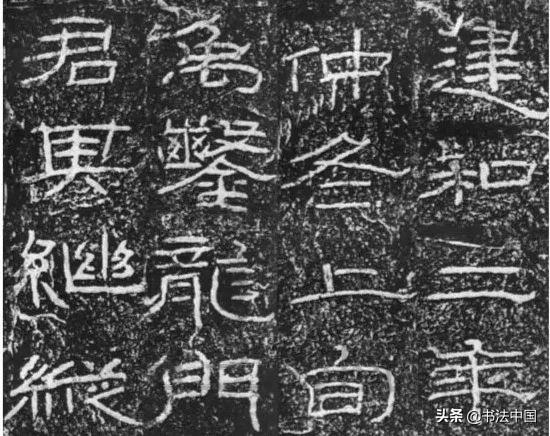 建和二年
仲冬上旬
禹鑿龍門
君其繼縱
头条 @书法中国